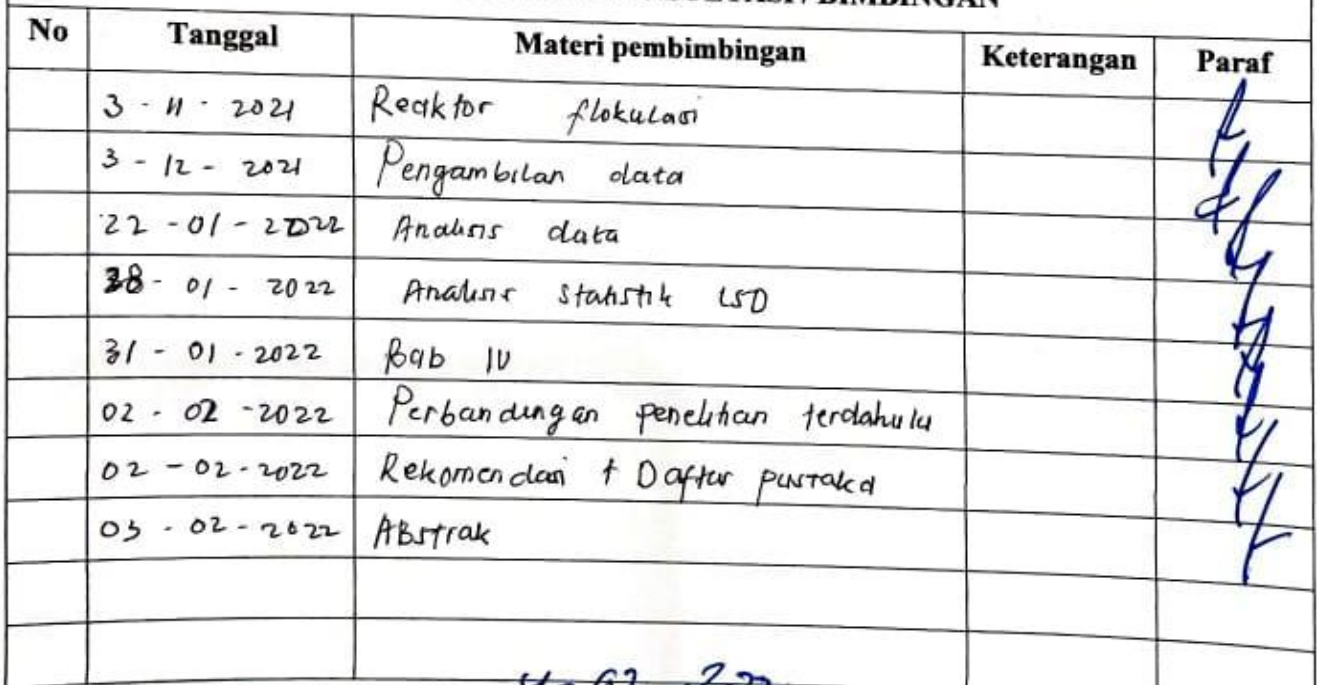 BIMBINGAN
No Tanggal Materi pembimbingan Keterangan Paraf
3 - 11 - 2021 Reaktor flokulasi
3 - 12 - 2021 Pengambilan data
22 - 01 - 2022 Analisis data
28 - 01 - 2022 Analisis statistik LSD
31 - 01 - 2022 Bab IV
02 - 02 - 2022 Perbandingan penelitian terdahulu
02 - 02 - 2022 Rekomendasi + Daftar pustaka
03 - 02 - 2022 ABstrak